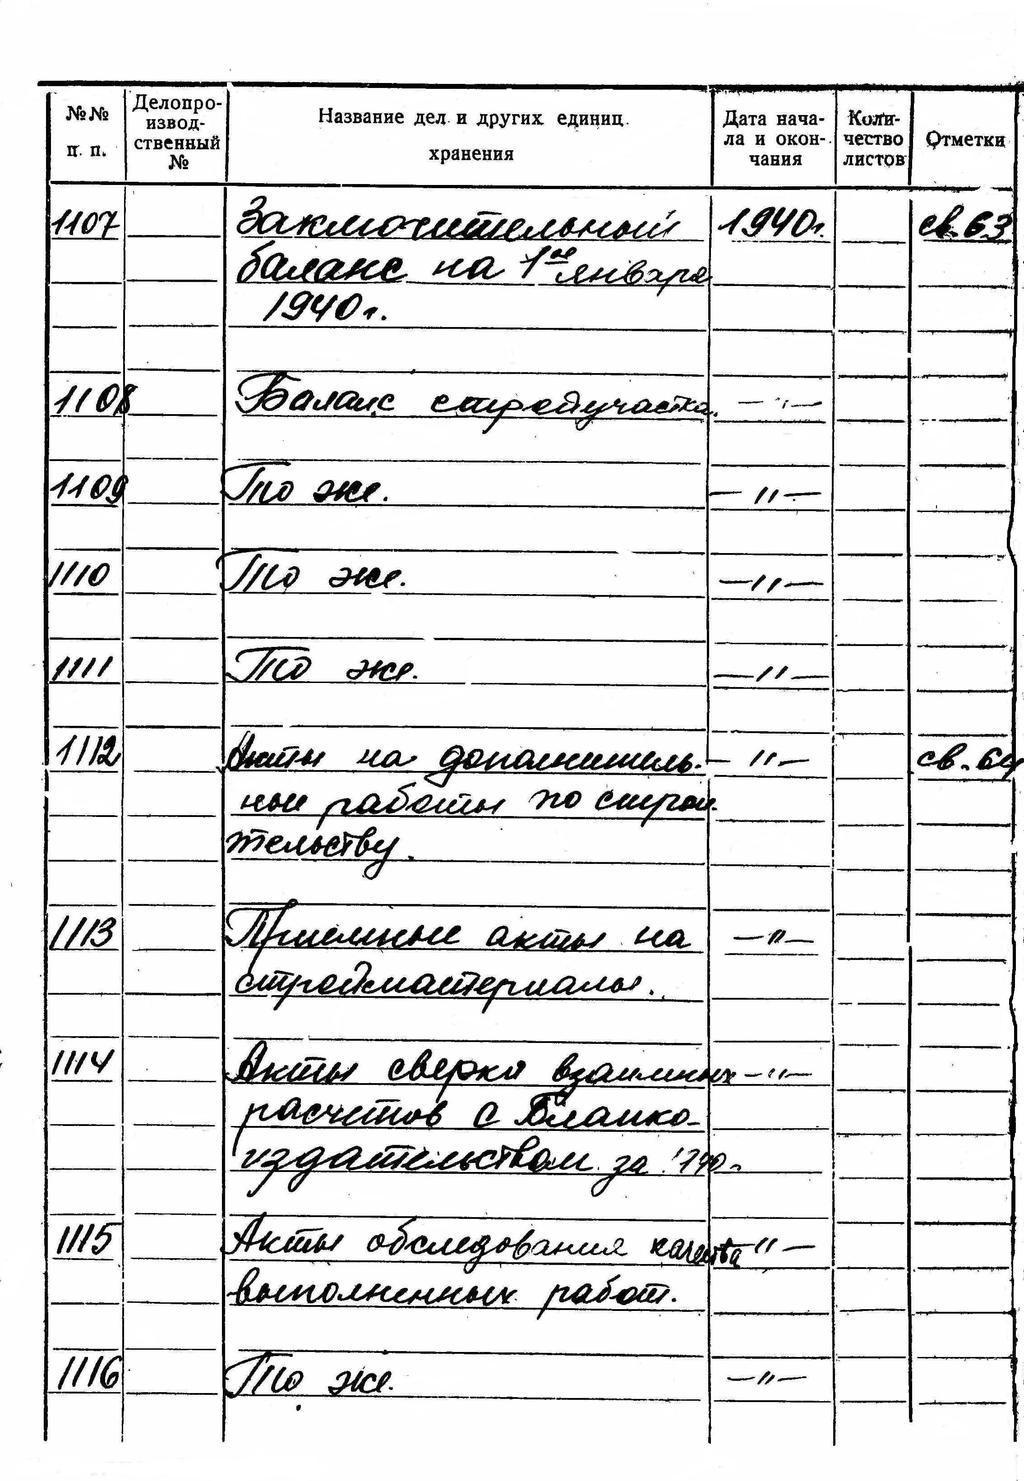 №№ п. п.
Делопро-
извод-
ственный
№
Название дел и других единиц
хранения
Дата нача-
ла и окон-
чания
Коли-
чество
листов
Отметки
1107 Заключительный 1940г. св. 63
баланс на 1ое января
1940г.
1108 Баланс стройучастка. —"—
1109 То же. —"—
1110 То же. —"—
1111 То же. —"—
1112 Акты на дополнитель- —"— св. 64
ные работы по строи-
тельству.
1113 Приемные акты на —"—
стройматериалы.
1114 Акты сверки взаимных —"—
расчетов с Бланко-
издательством за 1940г.
1115 Акты обследования качества —"—
выполненных работ.
1116 То же. —"—